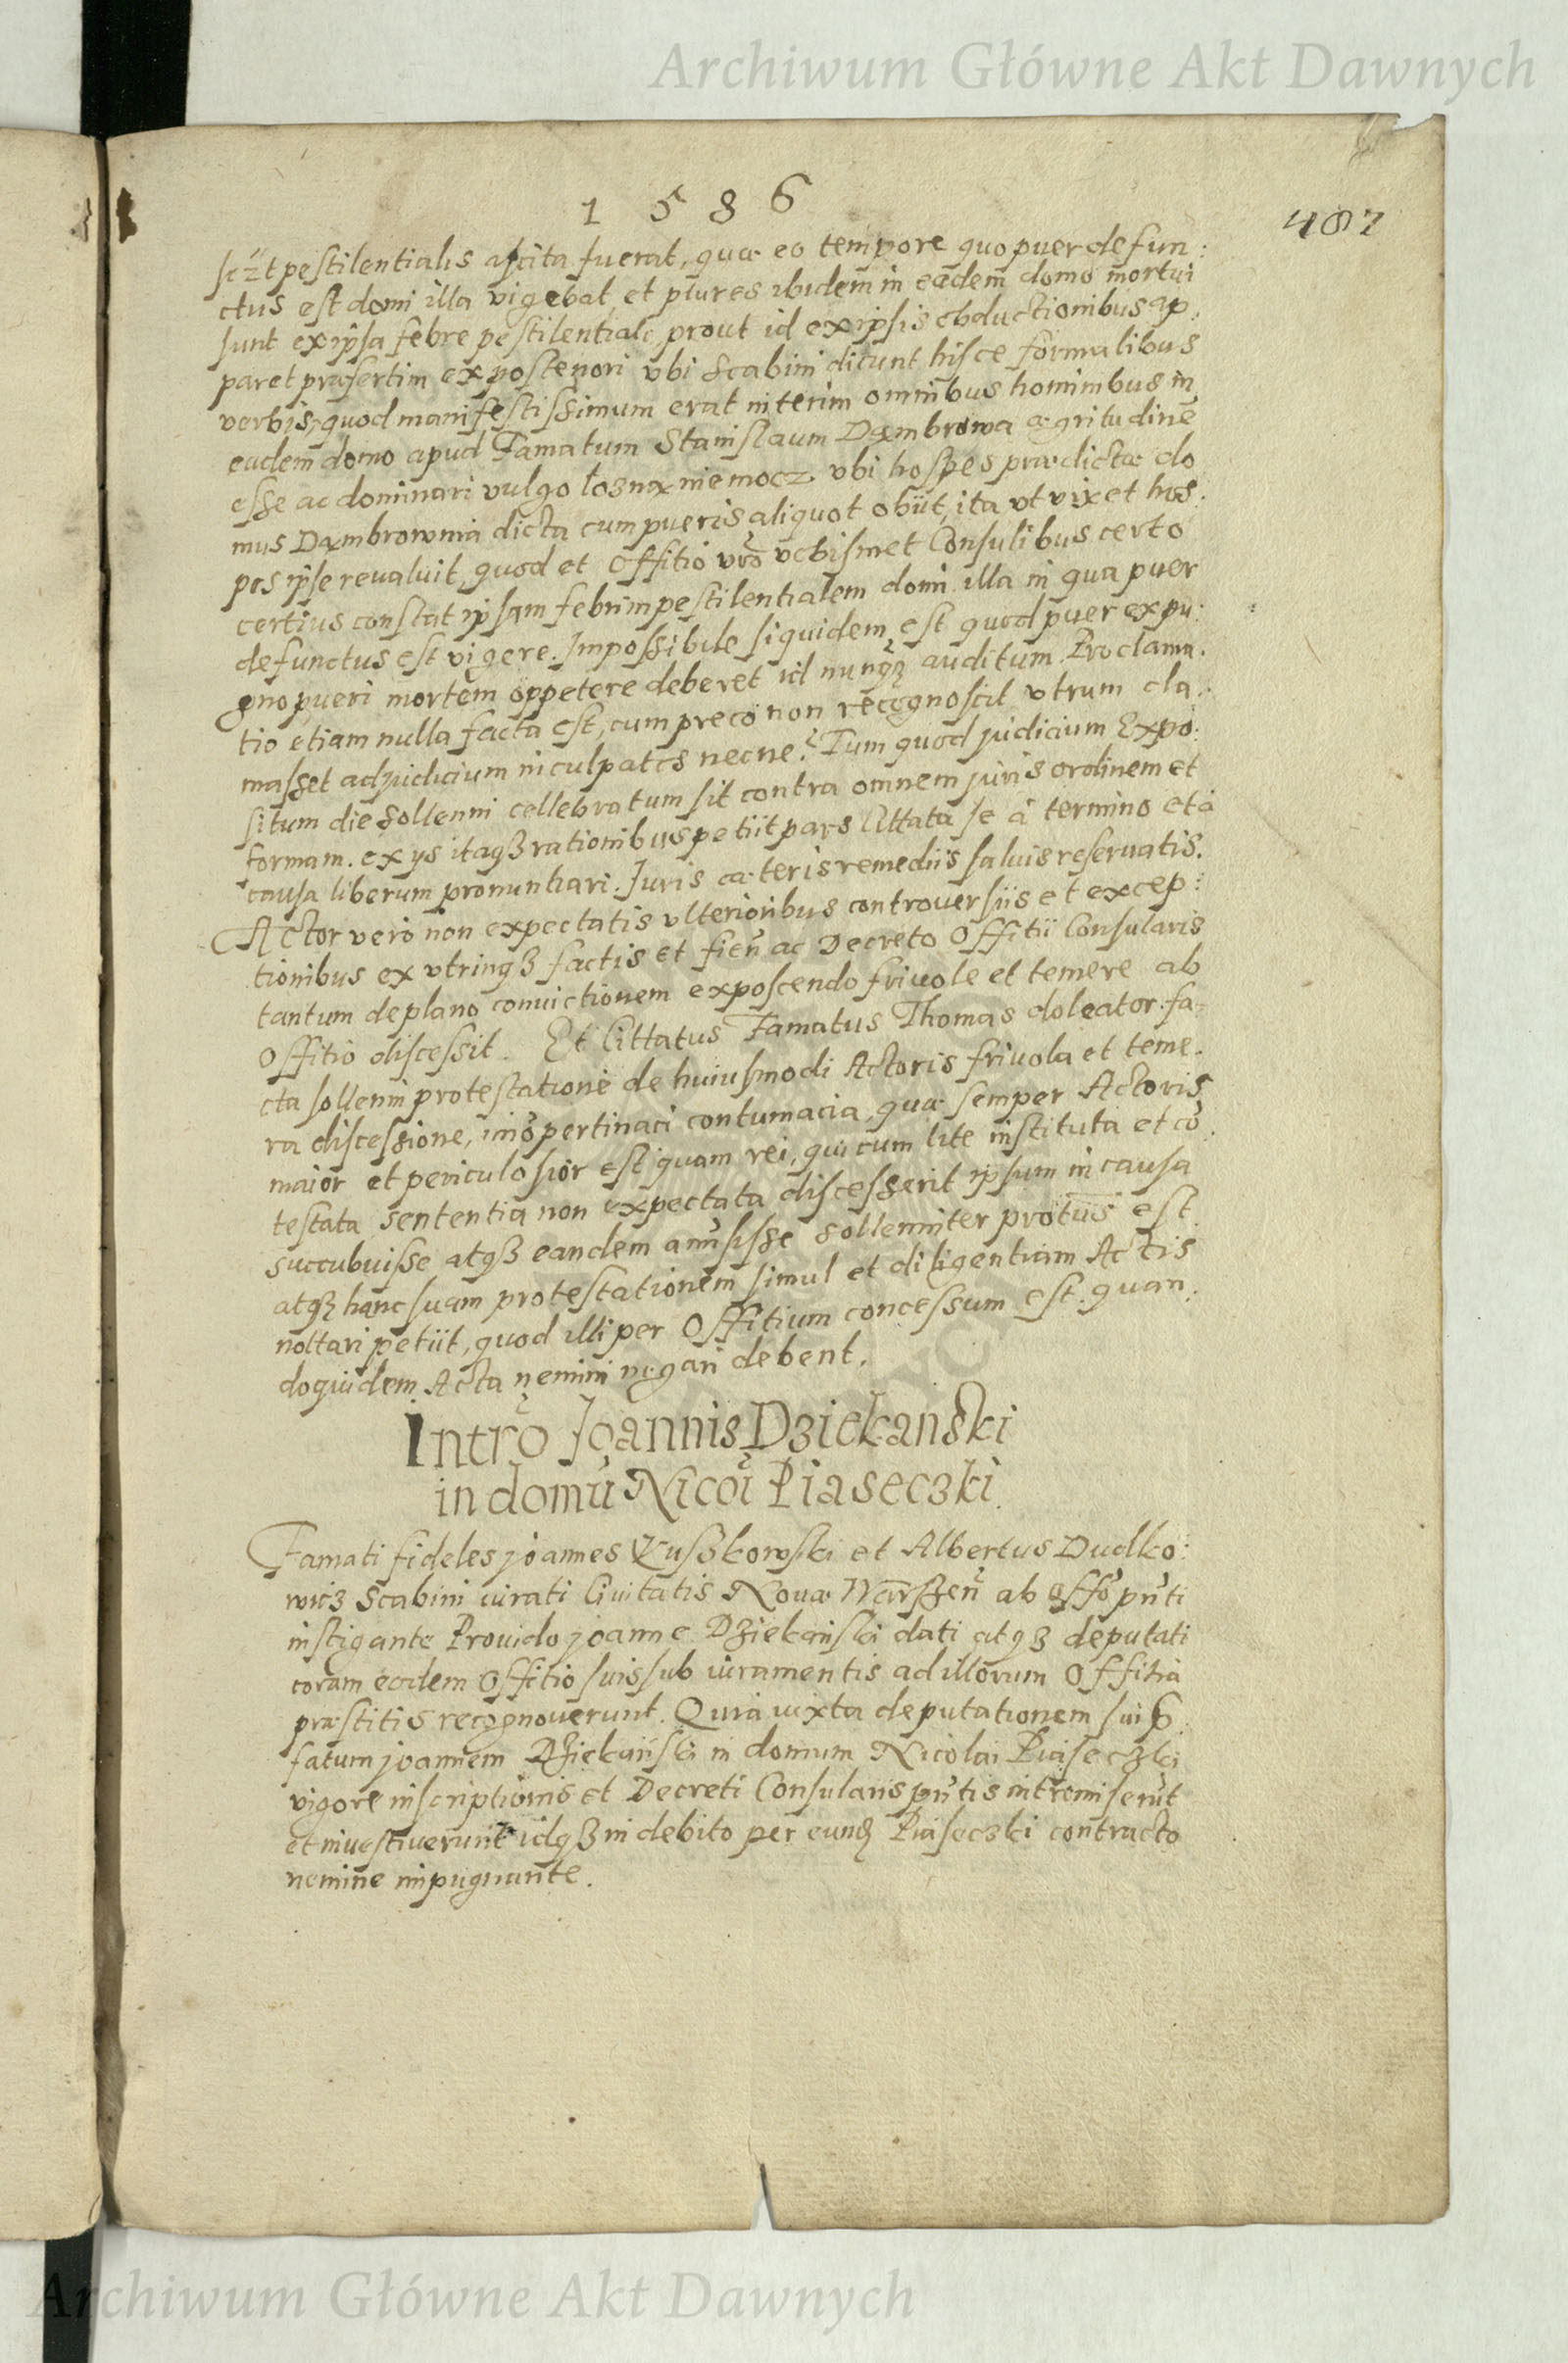 Archiwum Główne Akt Dawnych
1586
487
pestilentialis ascita fuerat, quæ eo tempore quo puer defun:
ctus est domi illa vigebat, et plures ibidem in eadem domo mortui
sunt ex ipsa febre pestilentiali, prout id ex ipsis obductionibus ap:
paret præsertim ex posteriori vbi Scabini dicunt hisce formalibus
verbis, quod manifestissimum erat interim omnibus hominibus in
eadem domo apud Famatum Stanislaum Dąmbrowa ægritudinē
esse ac dominari vulgo łożną niemocz vbi hospes prædictæ do
mus Dąmbrownia dicta cum pueris aliquot obiit, ita vt vix et hos:
pes ipse reualuit, quod et Offitio vr̃o vobismet Consulibus certo
certius constat ipsam febrim pestilentialem domi illa in qua puer
defunctus est vigere. Impossibile siquidem est quod puer ex pu:
gno pueri mortem oppetere deberet id nunqȝ auditum. Proclama:
tio etiam nulla facta est, cum preco non recognoscit vtrum cla:
masset ad judicium inculpatos necne. Tum quod judicium Expo:
situm die sollenni cellebratum sit contra omnem juris ordinem et
formam. ex ijs itaqȝ rationibus petiit pars Cittata se à termino et à
causa liberum pronuntiari. Juris cæteris remediis saluis reseruatis.
Actor vero non expectatis vlterioribus controuersiis et excep:
tionibus ex vtrinqȝ factis et fień ac Decreto Offitii Consularis
tantum de plano conuictionem exposcendo friuole et temere ab
Offitio discessit. Et Cittatus Famatus Thomas doleator fa:
cta sollenni protestatione de huiusmodi Actoris friuola et teme:
ra discessione, imo pertinaci contumacia, quæ semper Actoris
maior et periculosior est quam rei, qui cum lite instituta et cō:
testata sententia non expectata discesserit ipsum in causa
succubuisse atqȝ eandem amisisse sollenniter protūs est.
atqȝ hanc suam protestationem simul et diligentiam Actis
nottari petiit, quod illi per Offitium concessum est. quan:
doquidem Acta nemini negari debent.
Intrõ Joannis Dziekanski
in domū Nicoĩ Piaseczki
Famati fideles joannes Kuszkowski et Albertus Dudko:
wicz Scabini iurati Ciuitatis Nouæ Warszeń ab offō pñti
instigante Prouido joanne Dziekański dati atqȝ deputati
coram eodem Offitio suis sub iuramentis ad illorum Offitia
præstitis recognouerunt. Quia iuxta deputationem sui
fatum joannem Dziekański in domum Nicolai Piaseczki
vigore inscriptionis et Decreti Consularis pñtis intromiserūt
et inuestiuerunt idqȝ in debito per eund Piaseczki contracto
nemine impugnante.
Archiwum Główne Akt Dawnych